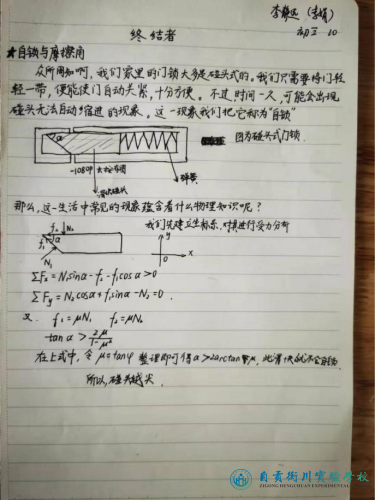 李静远(李婧)
初五-10
终结者
★自锁与摩擦角
众所周知啊，我们家里的门锁大多是碰头式的。我们只需要将门轻
轻一带，便能使门自动关紧，十分方便。不过，时间一久，可能会出现
碰头无法自动缩进的现象。这一现象我们把它称为"自锁"
α
图为碰头式门锁.
弹簧
那么，这一生活中常见的现象蕴含着什么物理知识呢？
我们先建立坐标系，对其进行受力分析
f₂ N₂
y
f₁ α
x
N₁
ΣFx = N₁sinα - f₂ - f₁cosα > 0
ΣFy = N₁cosα + f₁sinα - N₂ = 0.
又. f₁ = μN₁ f₂ = μN₂
tanα > 2μ/1-μ²
在上式中，令 μ=tanφ 整理即可得 α > 2arctanμ，此滑块就不会自锁.
所以，碰头越尖.
自贡衡川实验学校
ZIGONG HENGCHUAN EXPERIMENTAL